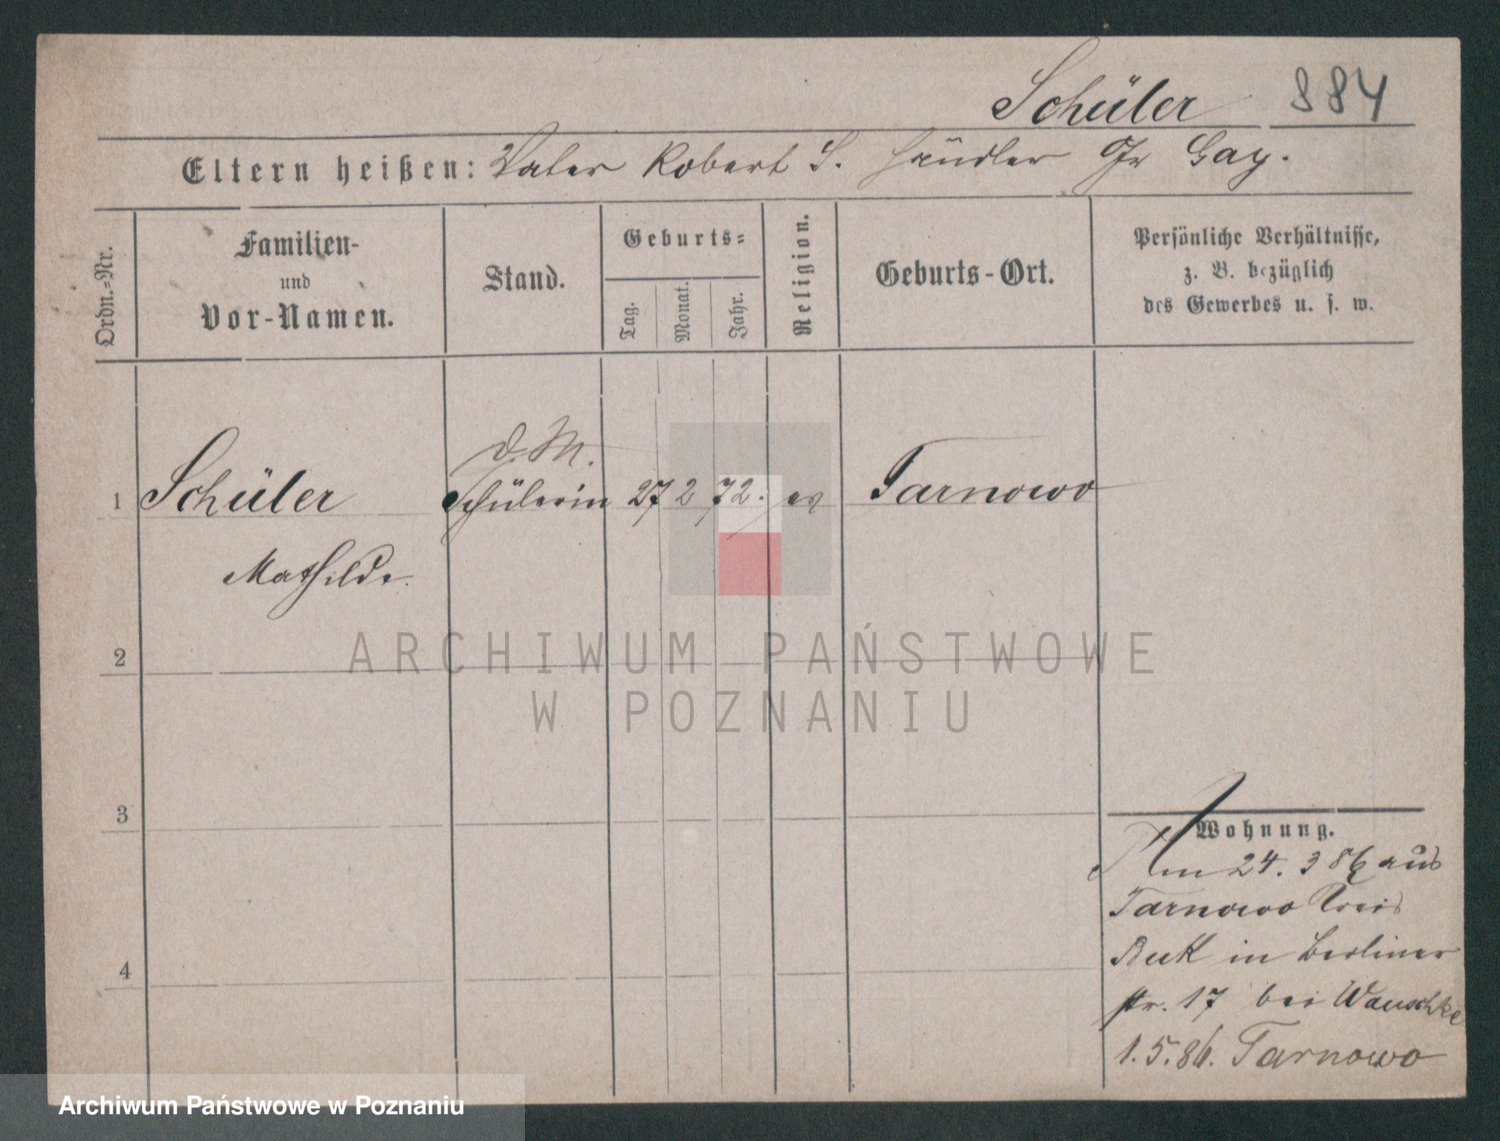 Schüler 884
Eltern heißen: Vater Robert S. Händler Gr Gay.
Ordn.-Nr.
Familien-
und
Vor-Namen.
Stand.
Geburts-
Tag.
Monat.
Jahr.
Religion.
Geburts-Ort.
Persönliche Verhältnisse,
z. B. bezüglich
des Gewerbes u. s. w.
d. M.
1 Schüler Schülerin 27 2 72. ev Tarnowo
Mathilde.
2
3
4
ARCHIWUM PAŃSTWOWE
W POZNANIU
Wohnung.
am 24. 3 86 aus
Tarnowo Kreis
Buk in Berliner
str. 17 bei Wauschke
1. 5. 86. Tarnowo
Archiwum Państwowe w Poznaniu